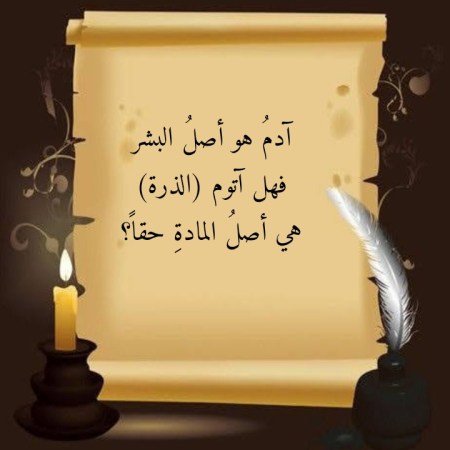 آدمُ هو أصلُ البشر
فهل آتوم (الذرة)
هي أصلُ المادةِ حقاً؟